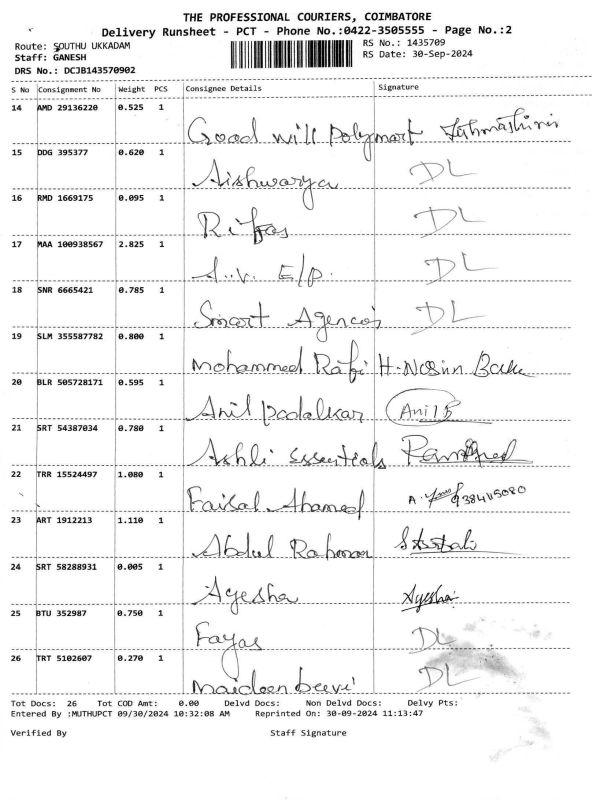 THE PROFESSIONAL COURIERS, COIMBATORE
Delivery Runsheet - PCT - Phone No.:0422-3505555 - Page No.:2
Route: SOUTHU UKKADAM RS No.: 1435709
Staff: GANESH RS Date: 30-Sep-2024
DRS No.: DCJB143570902
S No Consignment No Weight PCS Consignee Details Signature
14 AMD 29136220 0.525 1 Good will polymart
15 DDG 395377 0.620 1 Aishwarya DL
16 RMD 1669175 0.095 1 Rifas DL
17 MAA 100938567 2.825 1 A.V. E/p. DL
18 SNR 6665421 0.785 1 Smart Agencois DL
19 SLM 355587782 0.800 1 Mohammed Rafi H.
20 BLR 505728171 0.595 1 Anil padalkar Anil B
21 SRT 54387034 0.780 1 Ashli essentials
22 TRR 15524497 1.080 1 Faisal Ahamed A.
23 ART 1912213 1.110 1 Abdul Rahman
24 SRT 58288931 0.005 1 Ayesha Ayesha
25 BTU 352987 0.750 1 Fayas DL
26 TRT 5102607 0.270 1 maideen beevi DL
Tot Docs: 26 Tot COD Amt: 0.00 Delvd Docs: Non Delvd Docs: Delvy Pts:
Entered By :MUTHUPCT 09/30/2024 10:32:08 AM Reprinted On: 30-09-2024 11:13:47
Verified By Staff Signature